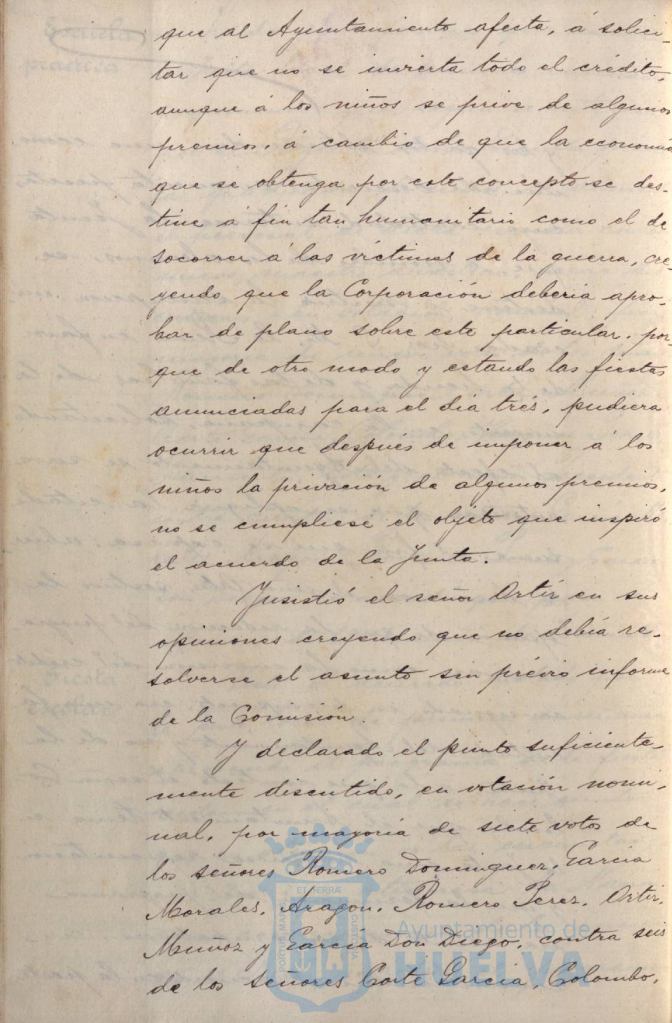 que al Ayuntamiento afecta, á solici-
tar que no se invierta todo el crédito,
aunque á los niños se prive de algunos
premios, á cambio de que la economia
que se obtenga por este concepto se des-
tine á fin tan humanitario como el de
socorrer á las víctimas de la guerra, cre-
yendo que la Corporación debería apro-
bar de plano sobre este particular, por-
que de otro modo y estando las fiestas
anunciadas para el día trés, pudiera
ocurrir que después de imponer á los
niños la privación de algunos premios,
no se cumpliese el objéto que inspiró
el acuerdo de la Junta.
Insistió el señor Ortíz en sus
opiniones creyendo que no debía re-
solverse el asunto sin prévio informe
de la Comisión.
Y declarado el punto suficiente-
mente discutido, en votación nomi-
nal, por mayoría de siete votos de
los señores Romero Dominguez, Garcia
Morales, Aragon, Romero Perez, Ortiz,
Muñoz y Garcia Don Diego, contra seis
de los señores Corte Garcia, Colombo,
Ayuntamiento de
HUELVA